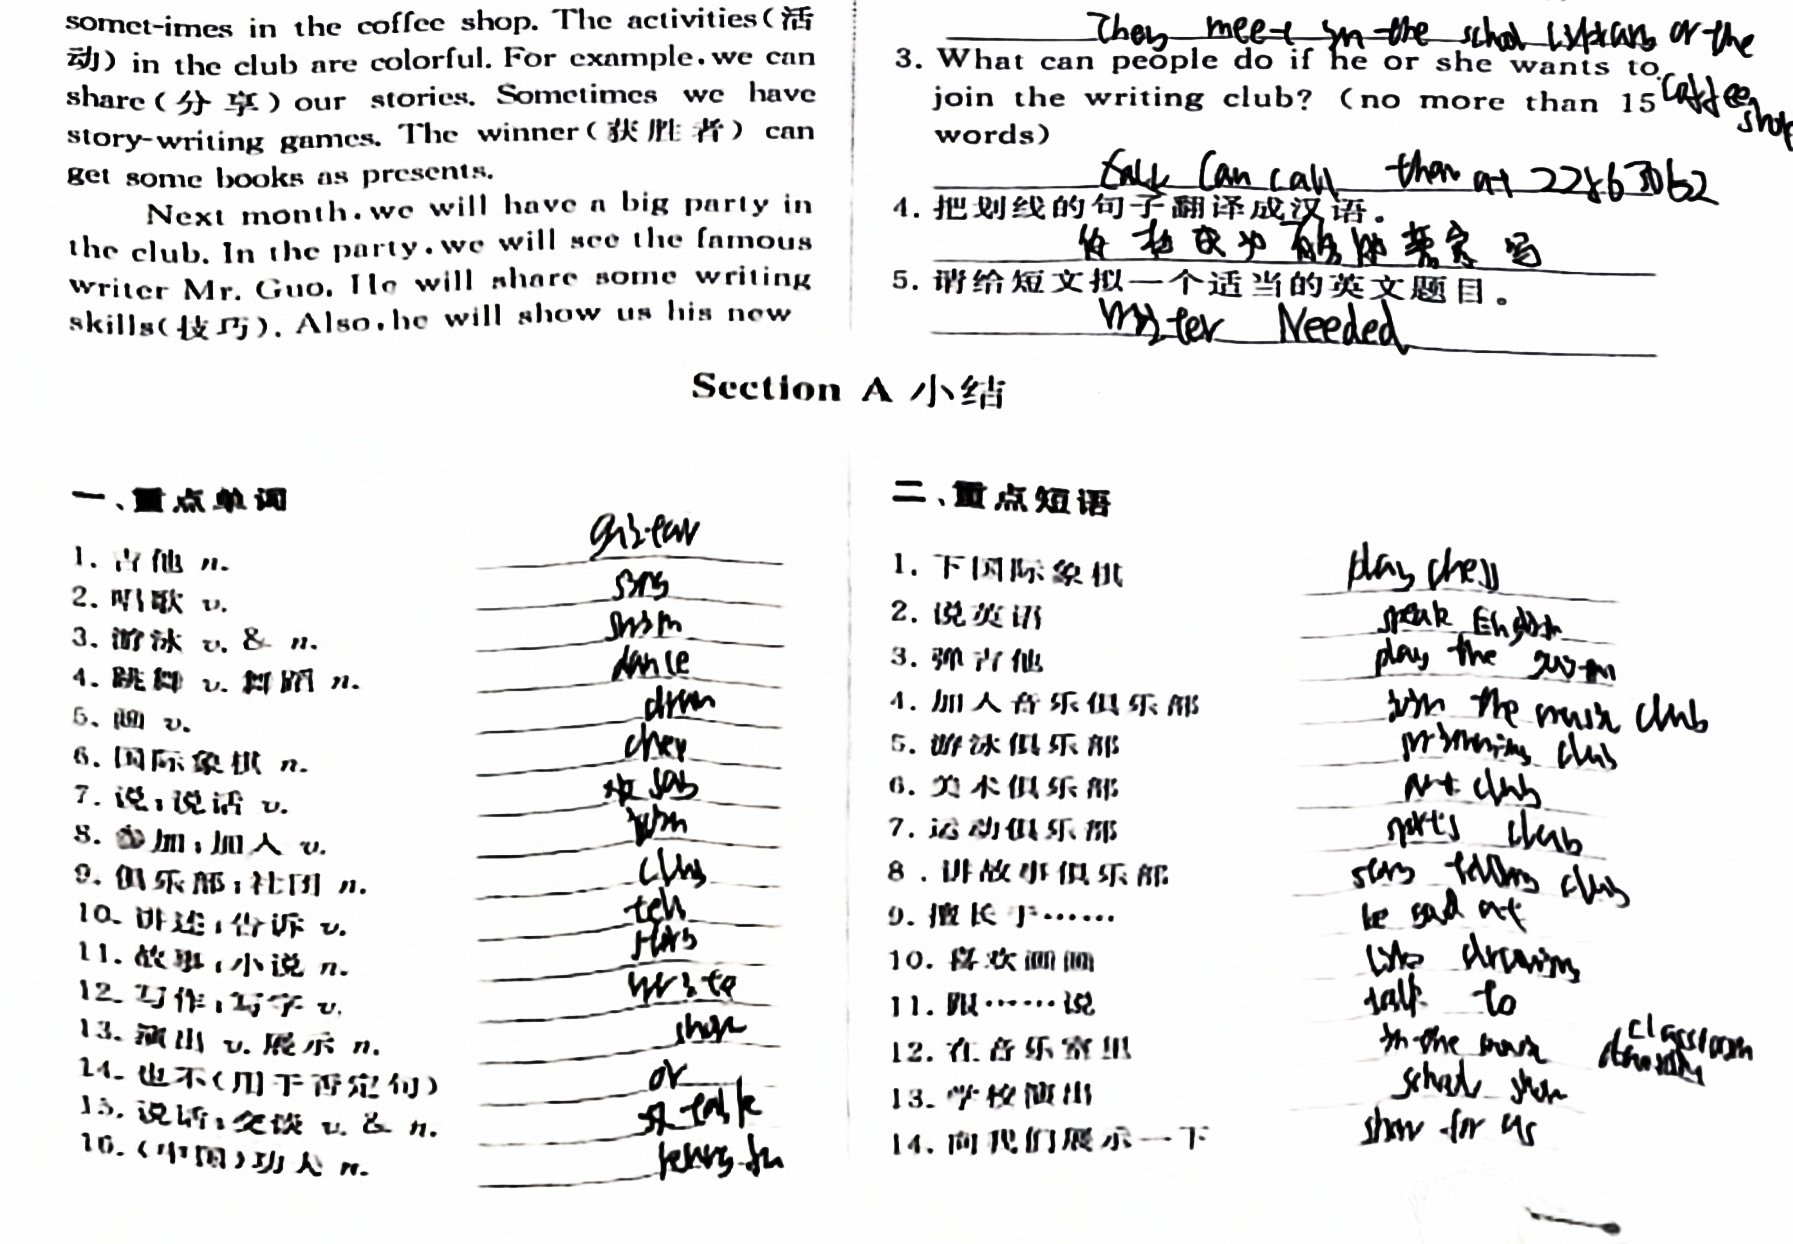 somet-imes in the coffee shop. The activities(活
动) in the club are colorful. For example, we can
share(分享) our stories. Sometimes we have
story-writing games. The winner(获胜者) can
get some books as presents.
Next month, we will have a big party in
the club. In the party, we will see the famous
writer Mr. Guo. He will share some writing
skills(技巧). Also, he will show us his new
They meet in the school library or the
coffee
shop
3. What can people do if he or she wants to
join the writing club? (no more than 15
words)
Can call them at 22863062
4. 把划线的句子翻译成汉语。
5. 请给短文拟一个适当的英文题目。
Writer Needed
Section A 小结
一、重点单词
1. 吉他 n. guitar
2. 唱歌 v. sing
3. 游泳 v. & n. swim
4. 跳舞 v. 舞蹈 n. dance
5. 画 v. draw
6. 国际象棋 n. chess
7. 说;说话 v. say
8. 参加;加入 v. join
9. 俱乐部;社团 n. club
10. 讲述;告诉 v. tell
11. 故事;小说 n.
12. 写作;写字 v. write
13. 演出 v. 展示 n. show
14. 也不(用于否定句) or
15. 说话;交谈 v. & n. talk
16. (中国)功夫 n.
二、重点短语
1. 下国际象棋 play chess
2. 说英语 speak English
3. 弹吉他 play the guitar
4. 加入音乐俱乐部 join the music club
5. 游泳俱乐部 swimming club
6. 美术俱乐部 art club
7. 运动俱乐部 sports club
8. 讲故事俱乐部 story telling club
9. 擅长于…… be good at
10. 喜欢画画 like drawing
11. 跟……说 talk to
12. 在音乐室里 in the music classroom
13. 学校演出 school show
14. 向我们展示一下 show for us